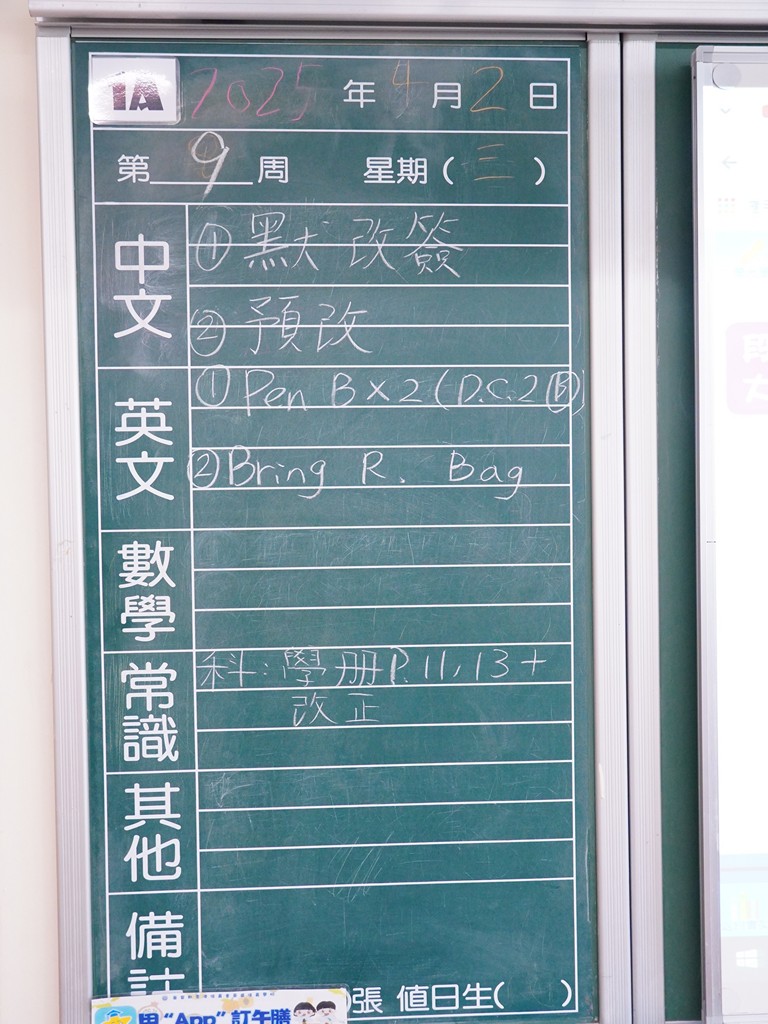 1A 2025 年 4 月 2 日
第 9 周 星期 ( 三 )
中文
① 默改簽
② 預改
英文
① Pen B × 2 (D.C.2 Ⓑ)
② Bring R. Bag
數學
常識
科：學册 P.11, 13 +
改正
其他
備註
張 值日生( )
用 “App” 訂午膳